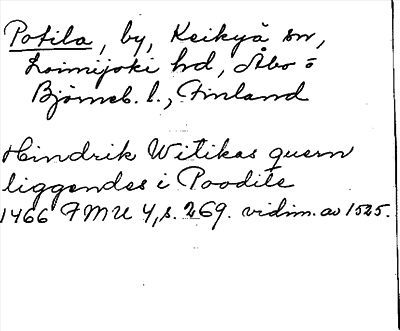 Potila, by, Keikyä sn,
Loimijoki hd, Åbo o
Björneb. l., Finland
Hindrik Witikas quern
liggendes i Poodile
1466 FMU 4, s. 269. vidim. av 1525.